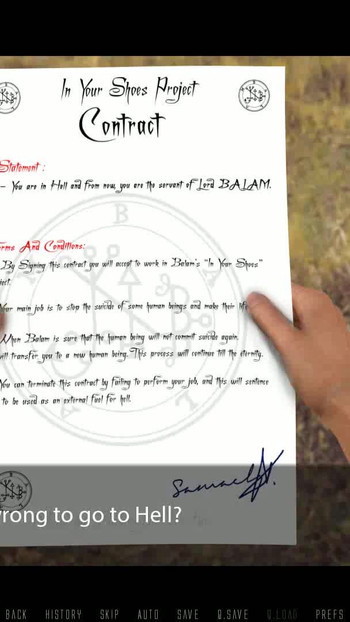 In Your Shoes Project
Contract
Statement :
- You are in Hell and from now, you are the servant of Lord BALAM.
rms And Conditions:
By Signing this contract you will accept to work in Balam's "In Your Shoes"
ject.
Your main job is to stop the suicide of some human beings and make their life
When Balam is sure that the human being will not commit suicide again,
ill transfer you to a new human being. This process will continue till the eternity.
You can terminate this contract by failing to perform your job, and this will sentence
to be used as an external fuel for hell.
Samael
wrong to go to Hell?
BACK HISTORY SKIP AUTO SAVE Q.SAVE Q.LOAD PREFS